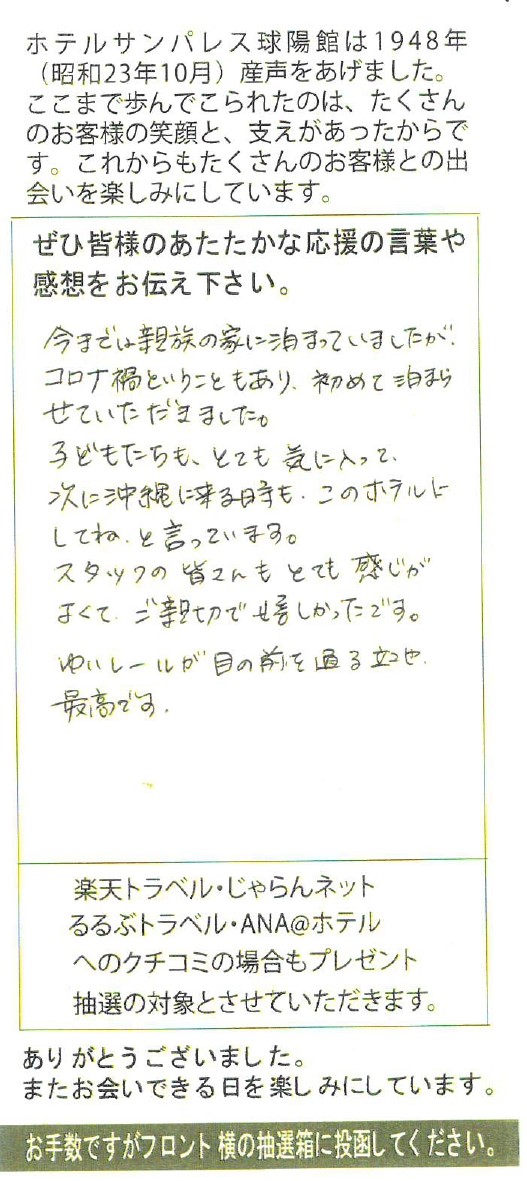 ホテルサンパレス球陽館は1948年
（昭和23年10月）産声をあげました。
ここまで歩んでこられたのは、たくさん
のお客様の笑顔と、支えがあったからで
す。これからもたくさんのお客様との出
会いを楽しみにしています。
ぜひ皆様のあたたかな応援の言葉や
感想をお伝え下さい。
今までは親族の家に泊まっていましたが、
コロナ禍ということもあり、初めて泊まら
せていただきました。
子どもたちも、とても気に入って、
次に沖縄に来る時も、このホテルに
してね、と言っています。
スタッフの皆さんもとても感じが
よくて、ご親切で嬉しかったです。
ゆいレールが目の前を通る立地も、
最高です。
楽天トラベル・じゃらんネット
るるぶトラベル・ANA@ホテル
へのクチコミの場合もプレゼント
抽選の対象とさせていただきます。
ありがとうございました。
またお会いできる日を楽しみにしています。
お手数ですがフロント横の抽選箱に投函してください。